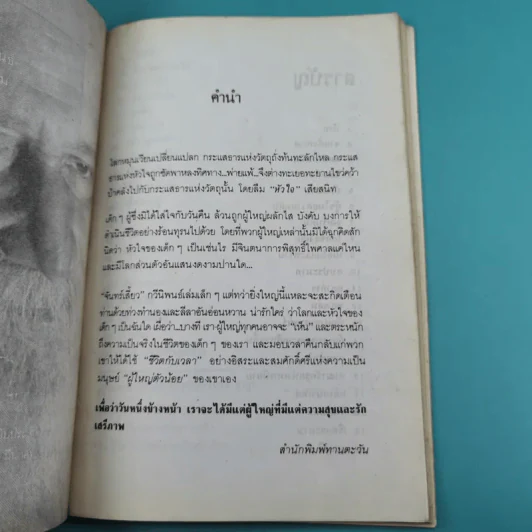 คำนำ
โลกหมุนเวียนเปลี่ยนแปลก กระแสธารแห่งวัตถุถั่งท้นทะลักไหล กระแส
ธารแห่งหัวใจถูกซัดพาหลงทิศทาง..พ่ายแพ้..จึงต่างทะเยอทะยานไขว่คว้า
ปักคลั่งไปกับกระแสธารแห่งวัตถุนั้น โดยลืม "หัวใจ" เสียสนิท
เด็ก ๆ ผู้ซึ่งมิได้ใส่ใจกับวันคืน ล้วนถูกผู้ใหญ่ผลักไส บังคับ บงการให้
ดำเนินชีวิตอย่างร้อนทุรนไปด้วย โดยที่พวกผู้ใหญ่เหล่านั้นมิได้ฉุกคิดสัก
นิดว่า หัวใจของเด็ก ๆ เป็นเช่นไร มีจินตนาการพิสุทธิ์ไพศาลแค่ไหน
และมีโลกส่วนตัวอันแสดงดงามปานใด...
"จันทร์เสี้ยว" กวีนิพนธ์เล่มเล็ก ๆ แต่ทว่ายิ่งใหญ่นี้แหละจะสะกิดเตือน
ท่านด้วยท่วงทำนองและลีลาอันอ่อนหวาน น่ารักใคร่ ว่าโลกและหัวใจของ
เด็ก ๆ เป็นฉันใด เผื่อว่า...บางที เรา-ผู้ใหญ่ทุกคนอาจจะ "เห็น" และตระหนัก
ถึงความเป็นจริงในชีวิตของเด็ก ๆ ของเรา และมอบเวลาคืนกลับแก่พวก
เขาให้ได้ใช้ "ชีวิตกับเวลา" อย่างอิสระและสมศักดิ์ศรีแห่งความเป็น
มนุษย์ "ผู้ใหญ่ตัวน้อย" ของเขาเอง
เพื่อว่าวันหนึ่งข้างหน้า เราจะได้มีแต่ผู้ใหญ่ที่มีแต่ความสุขและรัก
เสรีภาพ
สำนักพิมพ์ทานตะวัน